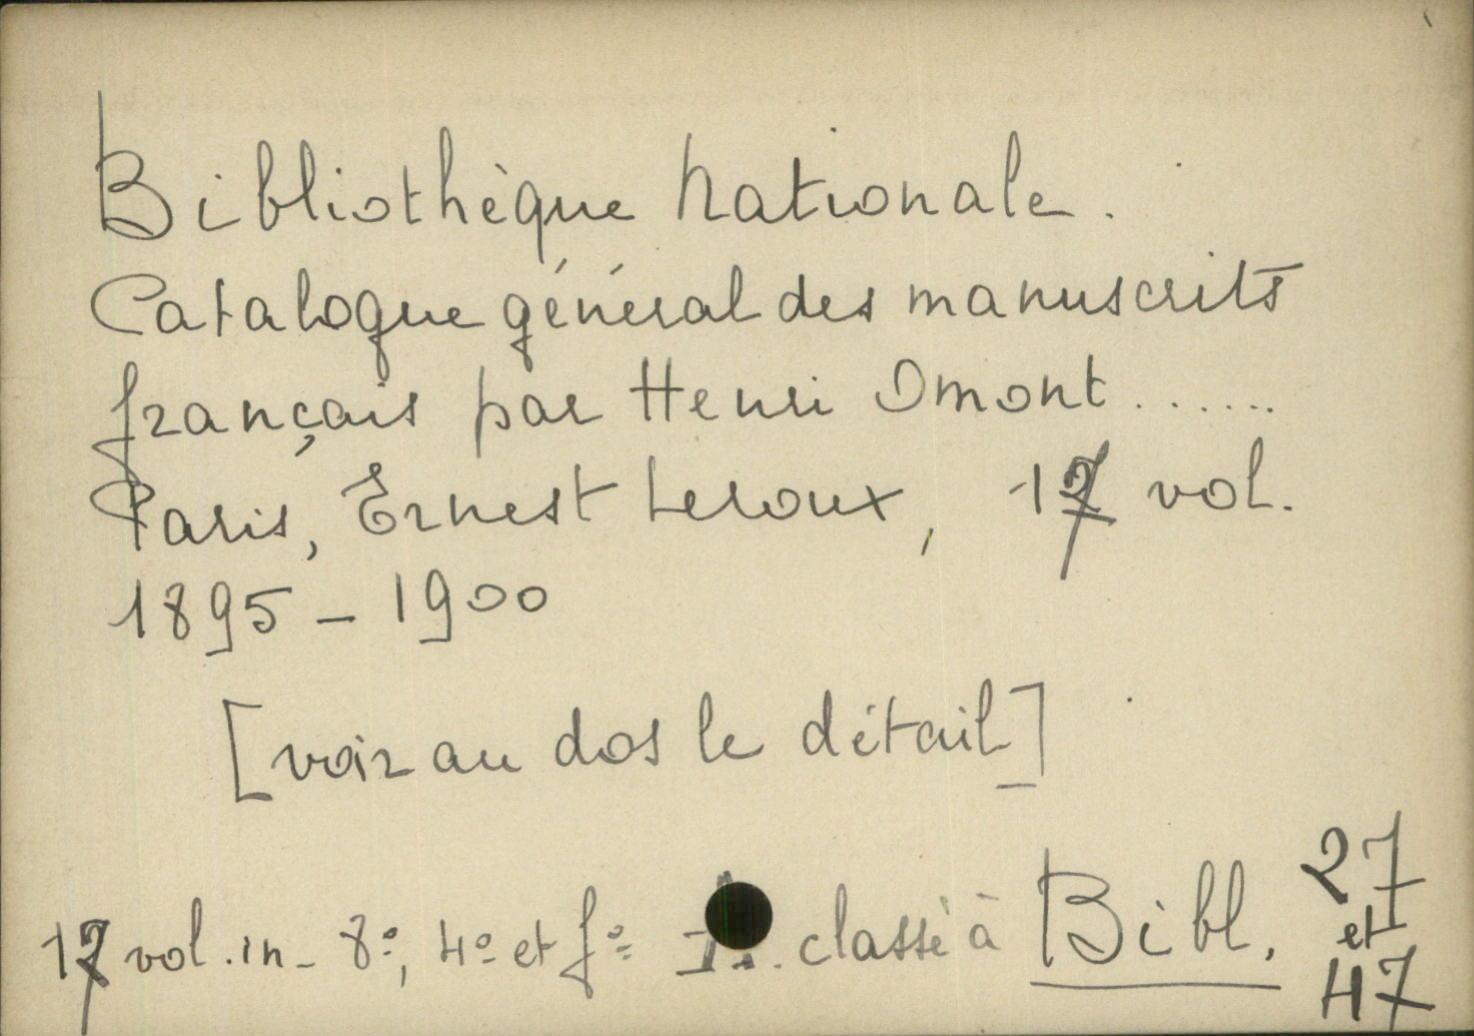 Bibliothèque Nationale.
Catalogue général des manuscrits
français par Henri Omont.......
Paris, Ernest Leroux, 17 vol.
1895-1900
[voir au dos le détail]
17 vol. in-8º, 4º et fº classé à Bibl. 27
et
47